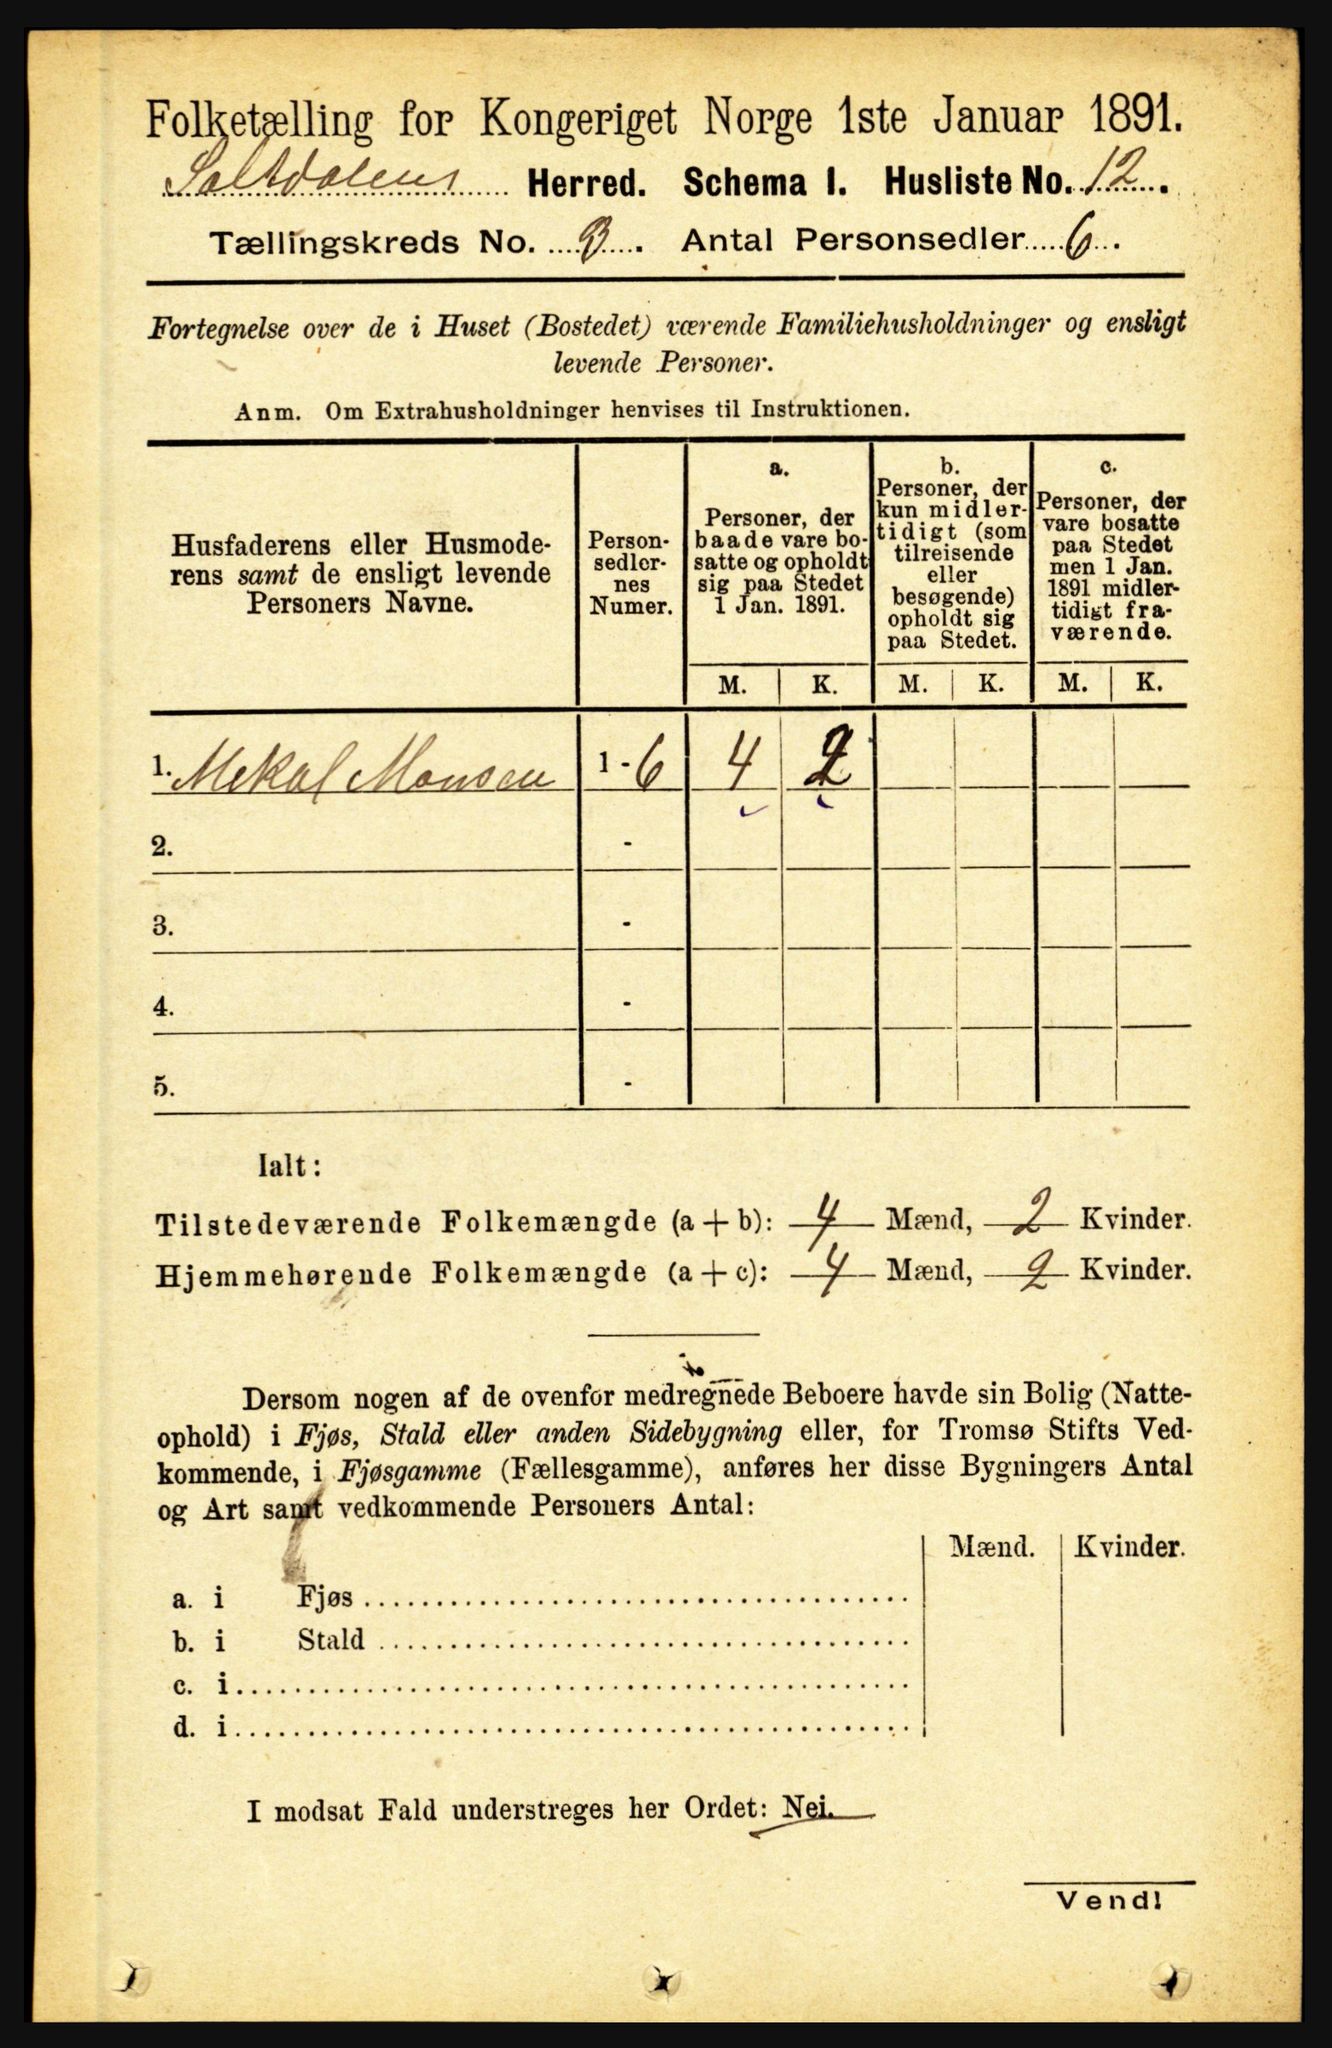 Folketælling for Kongeriget Norge 1ste Januar 1891.
Saltdalens Herred. Schema I. Husliste No. 12.
Tællingskreds No. 3. Antal Personsedler 6.
Fortegnelse over de i Huset (Bostedet) værende Familiehusholdninger og ensligt
levende Personer.
Anm. Om Extrahusholdninger henvises til Instruktionen.
Husfaderens eller Husmode-
rens samt de ensligt levende
Personers Navne.
Person-
sedler-
nes
Numer.
a.
Personer, der
baade vare bo-
satte og opholdt
sig paa Stedet
1 Jan. 1891.
b.
Personer, der
kun midler-
tidigt (som
tilreisende
eller
besøgende)
opholdt sig
paa Stedet.
c.
Personer, der
vare bosatte
paa Stedet
men 1 Jan.
1891 midler-
tidigt fra-
værende.
M. K. M. K. M. K.
1. Mekal Monsen 1 - 6 4 2
2. -
3. -
4. -
5. -
Ialt:
Tilstedeværende Folkemængde (a + b): 4 Mænd, 2 Kvinder.
Hjemmehørende Folkemængde (a + c): 4 Mænd, 2 Kvinder.
Dersom nogen af de ovenfor medregnede Beboere havde sin Bolig (Natte-
ophold) i Fjøs, Stald eller anden Sidebygning eller, for Tromsø Stifts Ved-
kommende, i Fjøsgamme (Fællesgamme), anføres her disse Bygningers Antal
og Art samt vedkommende Personers Antal:
Mænd. Kvinder.
a. i Fjøs
b. i Stald
c. i
d. i
I modsat Fald understreges her Ordet: Nei.
Vend!